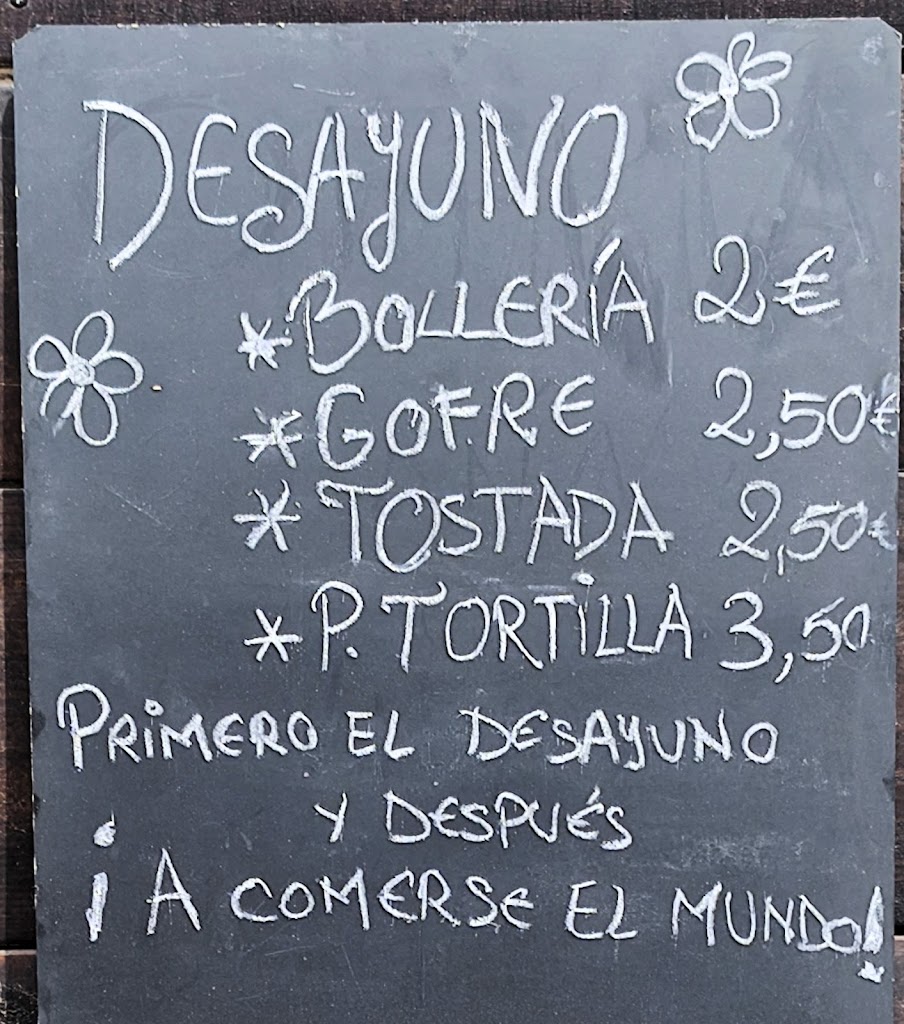 DESAYUNO
*BOLLERÍA 2€
*GOFRE 2,50€
*TOSTADA 2,50€
*P. TORTILLA 3,50
PRIMERO EL DESAYUNO
Y DESPUÉS
¡A COMERSE EL MUNDO!